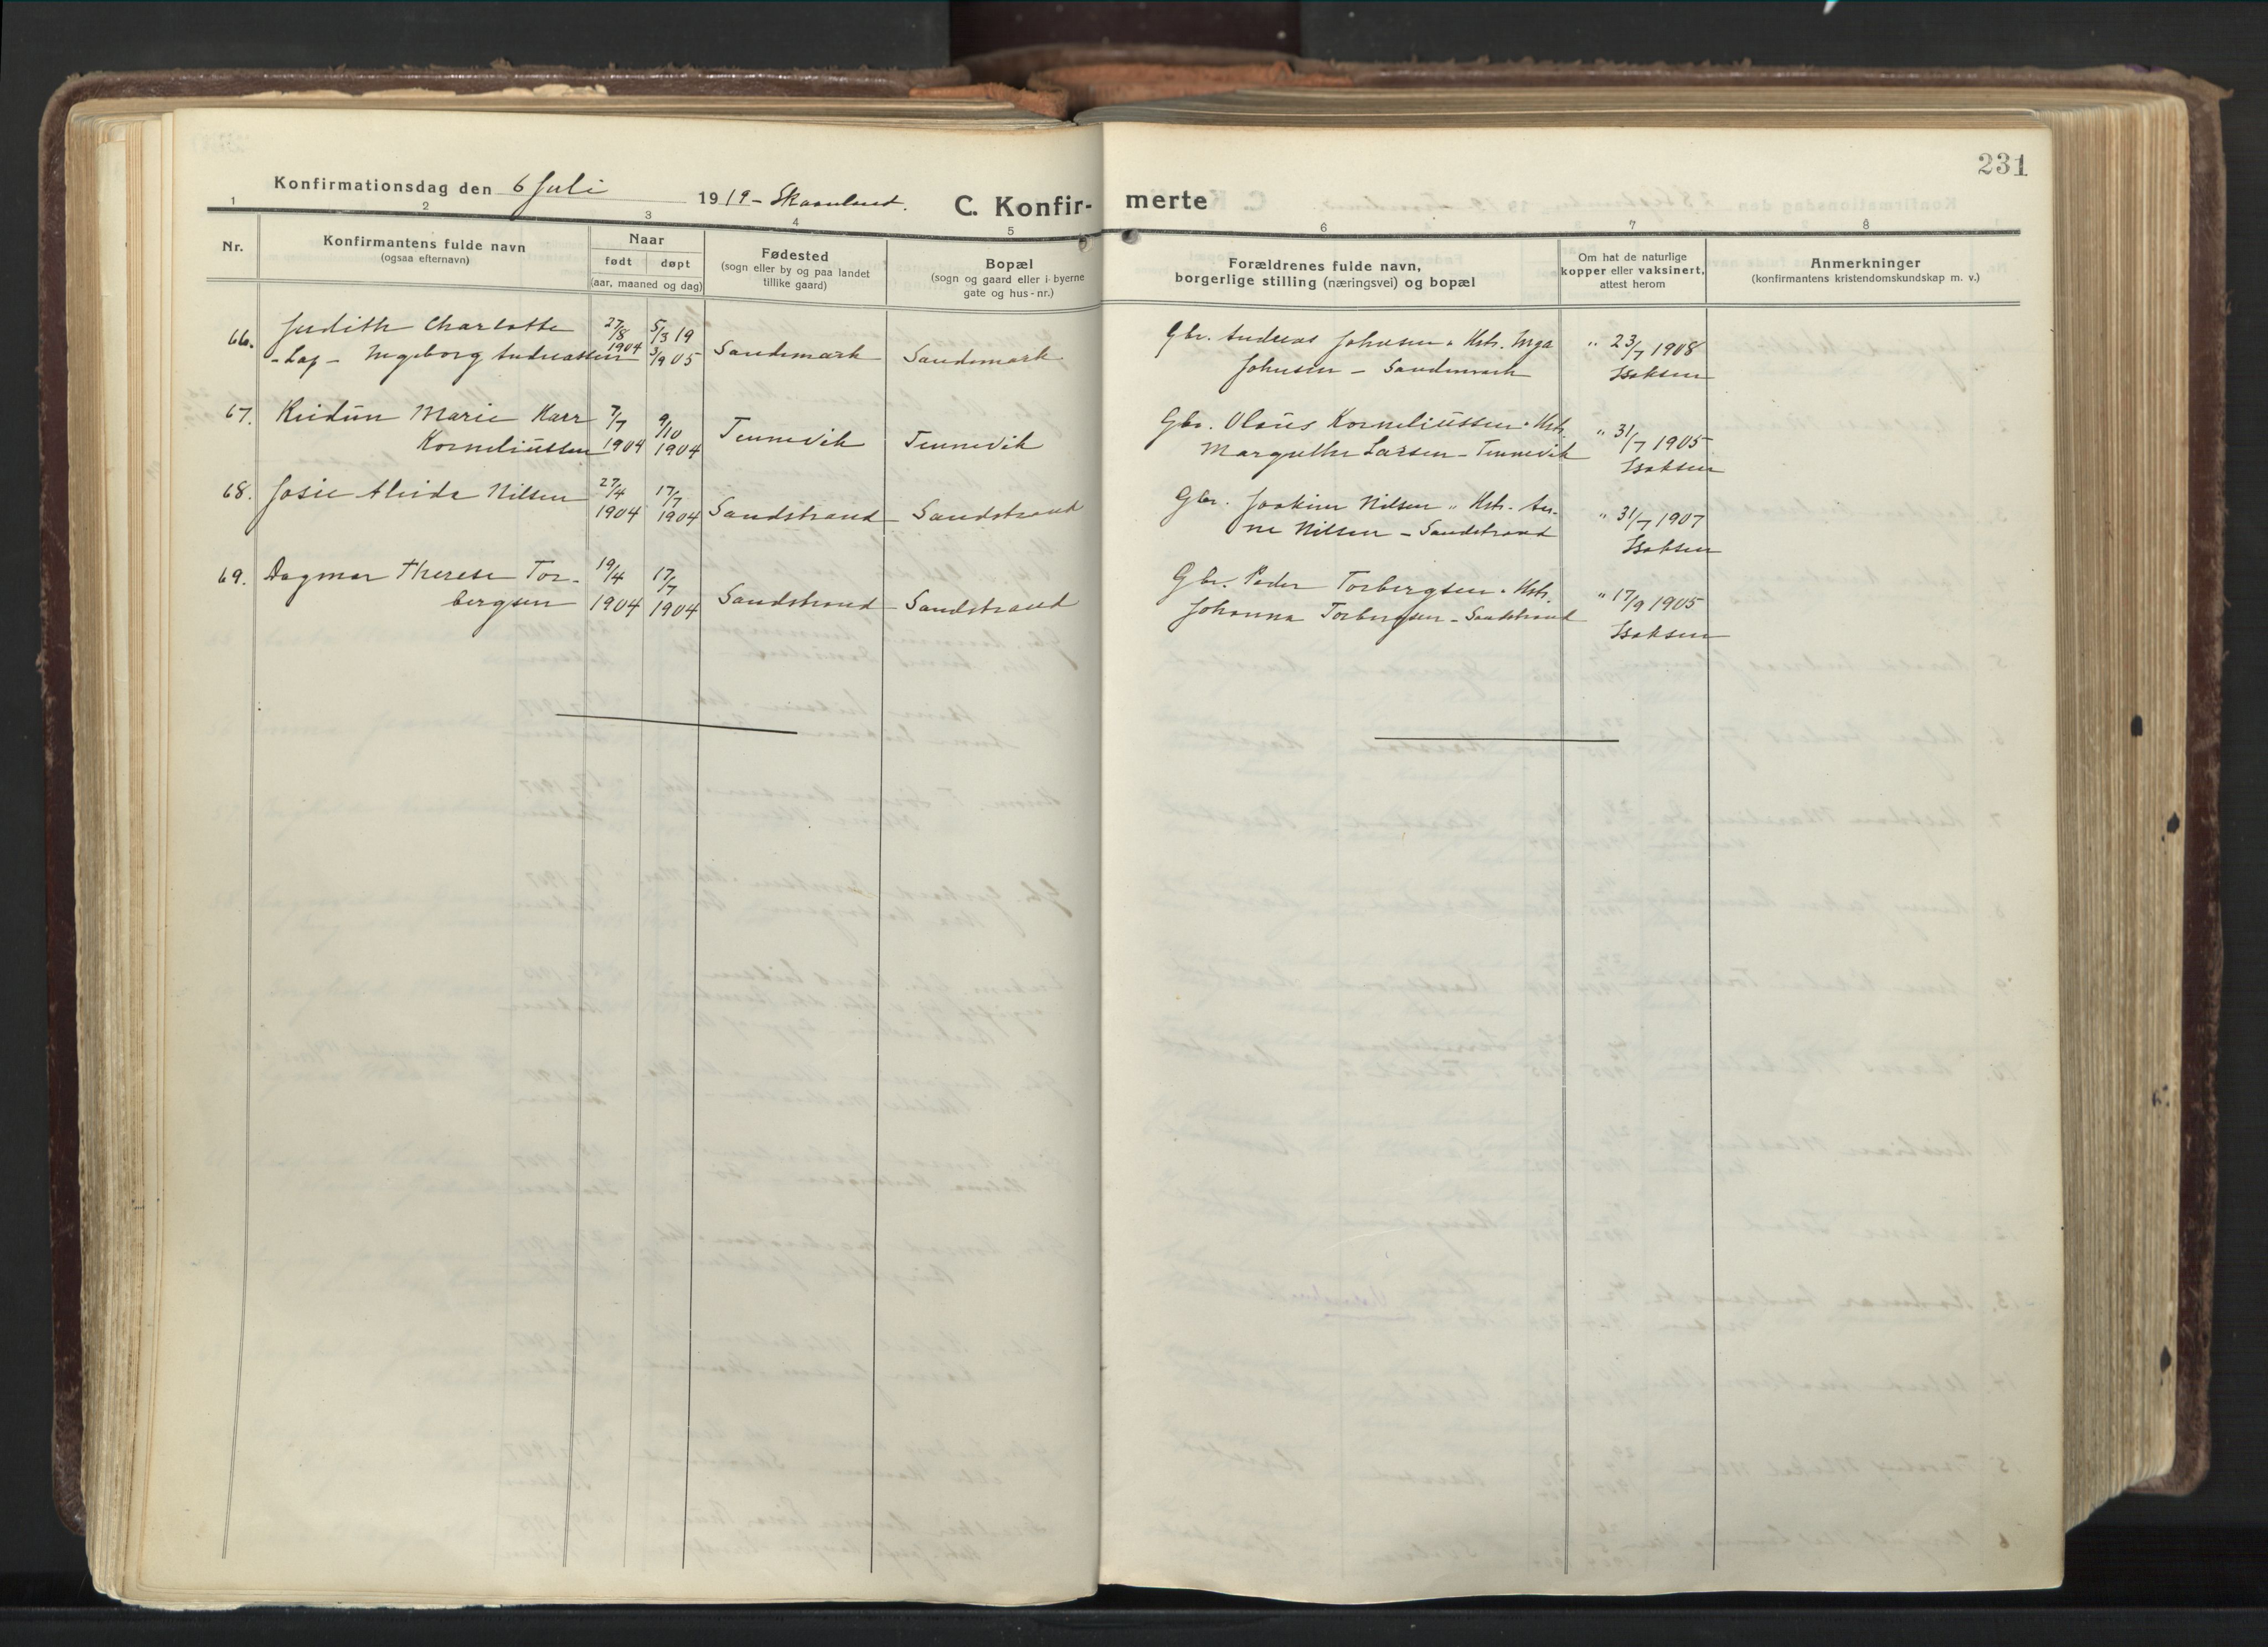 231
Konfirmationsdag den 6 Juli 1919 - Skaanland. C. Konfirmerte
1 2 3 4 5 6 7 8
Nr.
Konfirmantens fulde navn
(ogsaa efternavn)
Naar
født døpt
(aar, maaned og dag)
Fødested
(sogn eller by og paa landet
tillike gaard)
Bopæl
(sogn og gaard eller i byerne
gate og hus-nr.)
Forældrenes fulde navn,
borgerlige stilling (næringsvei) og bopæl
Om hat de naturlige
kopper eller vaksinert,
attest herom
Anmerkninger
(konfirmantens kristendomskundskap m. v.)
66. Judith Charlotte 27/8 5/3 19 Gbr. Andreas Johnsen o. Hstr. Inga " 23/7 1908
- Lap - Ingeborg Andreassen 1904 3/9 05 Sandemark Sandemark Johnsen - Sandemark Isaksen
67. Reidun Marie Karr 7/7 9/10 Gbr. Olaus Korneliussen o. Hstr. " 31/7 1905
Korneliussen 1904 1904 Tennevik Tennevik Margrethe Larsen - Tennevik Isaksen
68. Josie Alvida Nilsen 27/4 17/7 Gbr. Joakim Nilsen o. Hstr. An- " 31/7 1907
1904 1904 Sandstrand - Sandstrand ne Nilsen - Sandstrand Isaksen
69. Dagmar Therese Tor- 19/4 17/7 Gbr. Peder Torbergsen o. Hstr. " 17/9 1905
bergsen 1904 1904 Sandstrand - Sandstrand Johanna Torbergsen - Sandstrand Isaksen